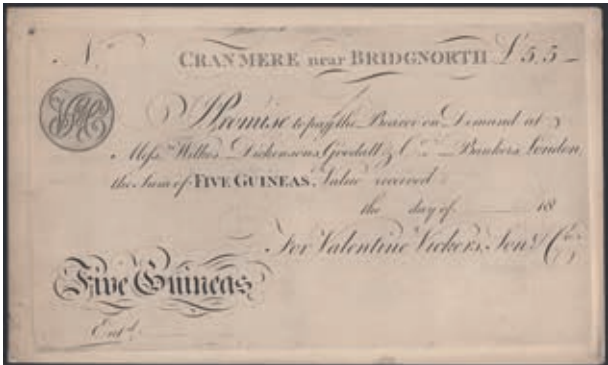 No. CRANMERE near BRIDGNORTH £5,5
I Promise to pay the Bearer on Demand at
Messrs. Wilkes Dickensons, Goodall & Co. Bankers, London,
the Sum of FIVE GUINEAS, Value received
the day of 18
For Valentine Vickers, Son & Co.
Five Guineas
Entd.